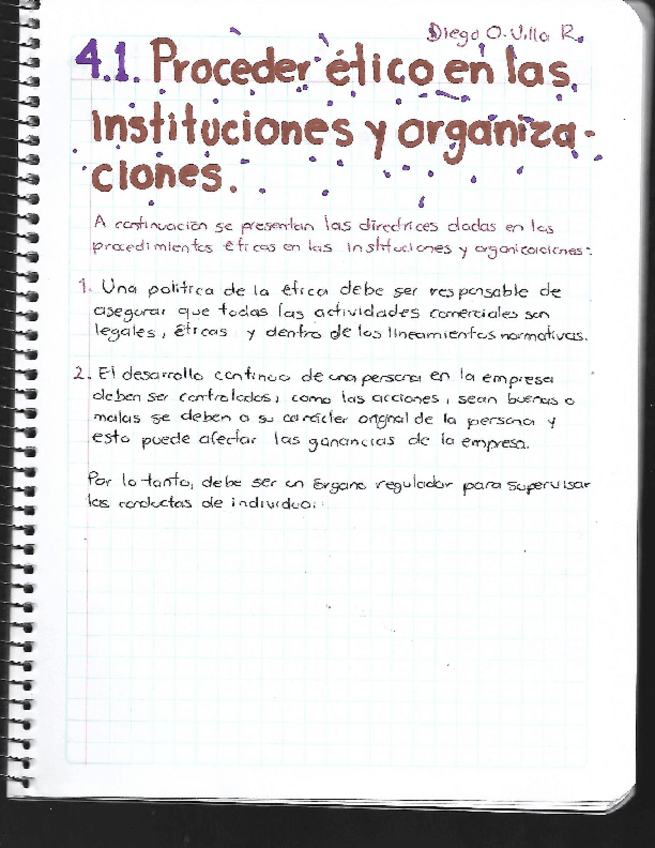 Diego O. Villa R.
4.1. Proceder ético en las
instituciones y organiza-
ciones.
A continuación se presentan las directrices dadas en los
procedimientos éticos en las instituciones y organizaciones:
1. Una política de la ética debe ser responsable de
asegurar que todas las actividades comerciales son
legales, éticas y dentro de los lineamientos normativos.
2. El desarrollo continuo de una persona en la empresa
deben ser controlados, como las acciones, sean buenas o
malas se deben a su carácter original de la persona y
esto puede afectar las ganancias de la empresa.
Por lo tanto, debe ser un órgano regulador para supervisar
las conductas de individuo.